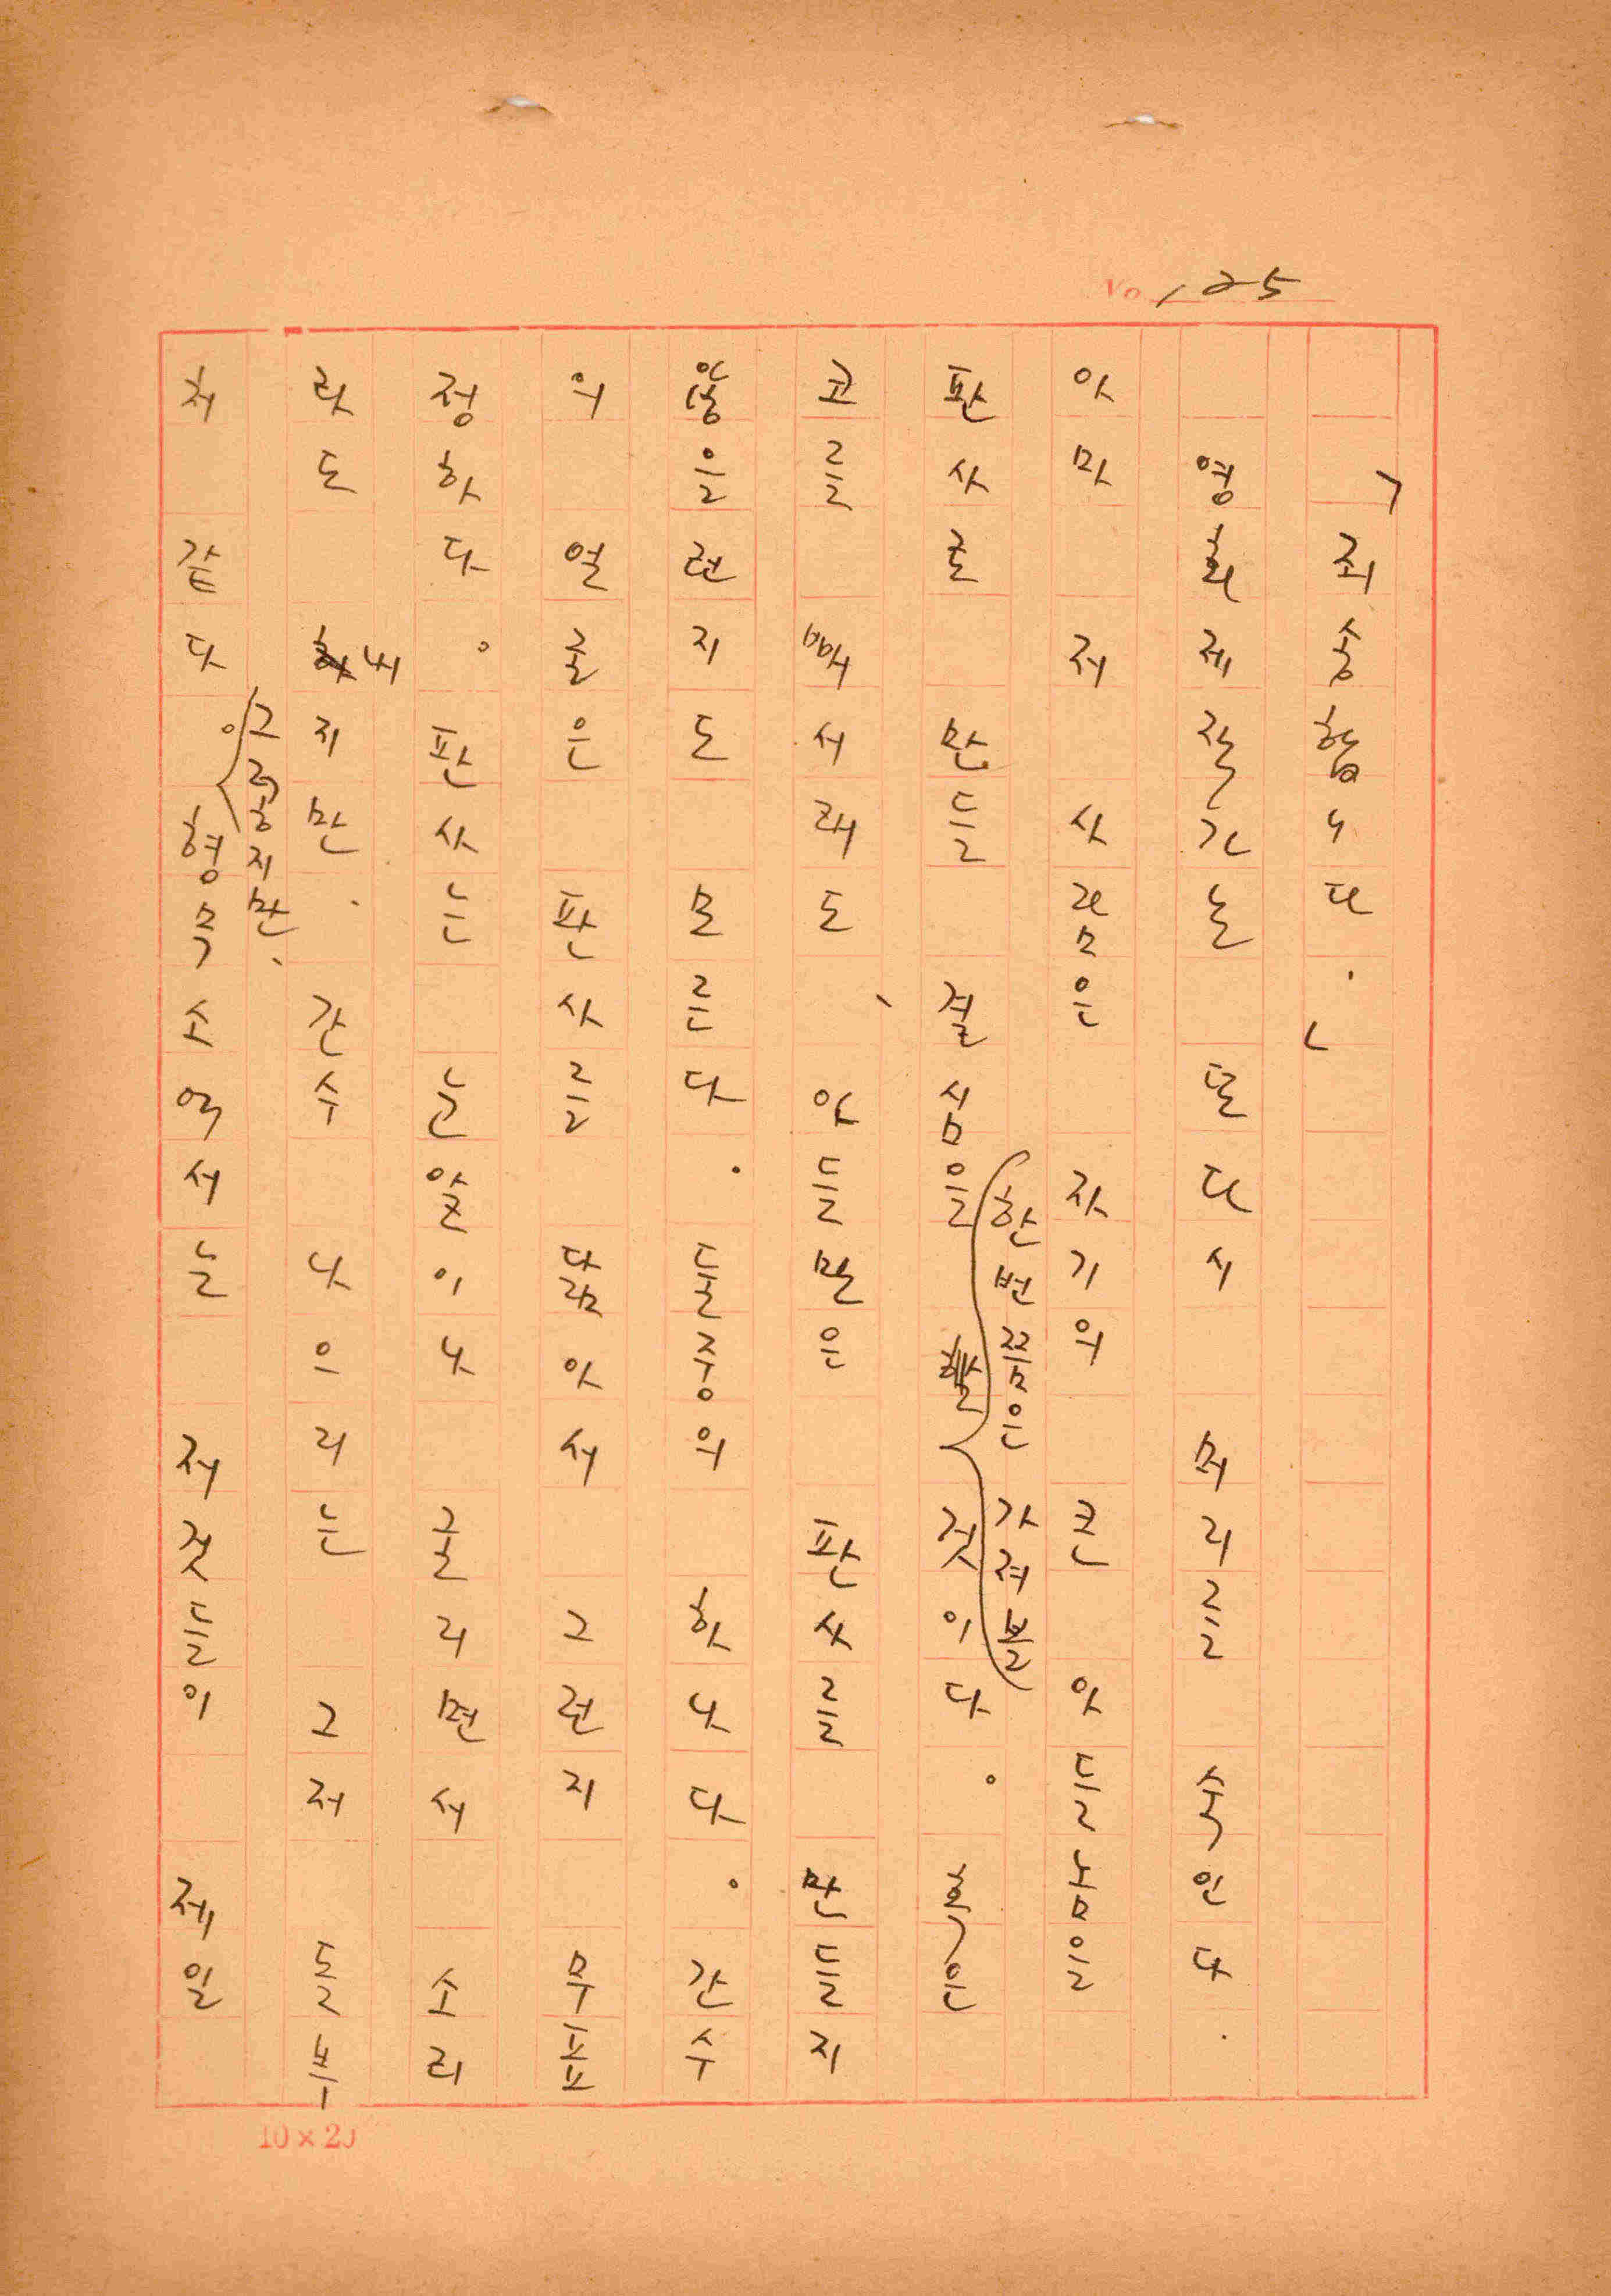 No. 125
「죄송합니다.」
영화제작가는 또다시 머리를 숙인다.
아마 저 사람은 자기의 큰 아들놈을
판사로 만들 결심을 한번쯤은 가져볼 것이다. 혹은
코를 빼서래도、아들만은 판사를 만들지
않을런지도 모른다. 둘중의 하나다. 간수
의 얼굴은 판사를 닮아서 그런지 무표
정하다. 판사는 눈알이나 굴리면서 소리
라도 내지만. 간수 나으리는 그저 돌부
처 같다. 그러하지만、형무소에서는 저것들이 제일
10×20